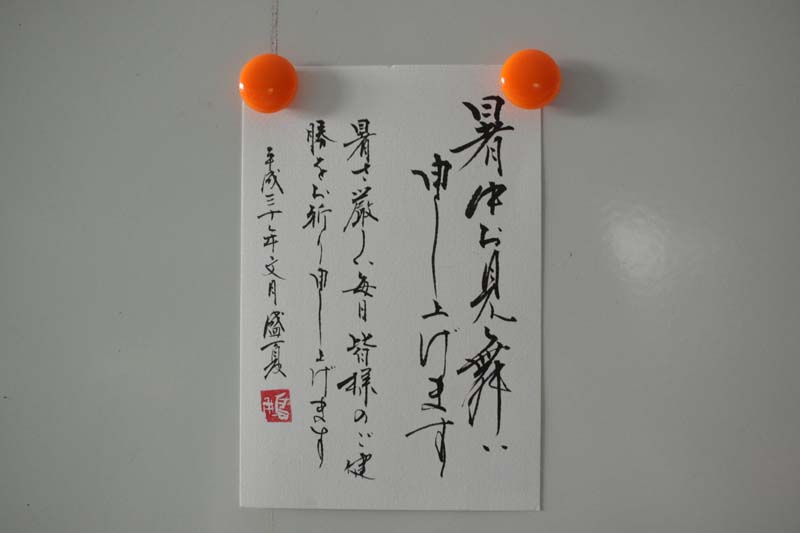 暑中お見舞い
申し上げます
暑さ厳しい毎日皆様のご健
勝をお祈り申し上げます
平成三十年文月盛夏